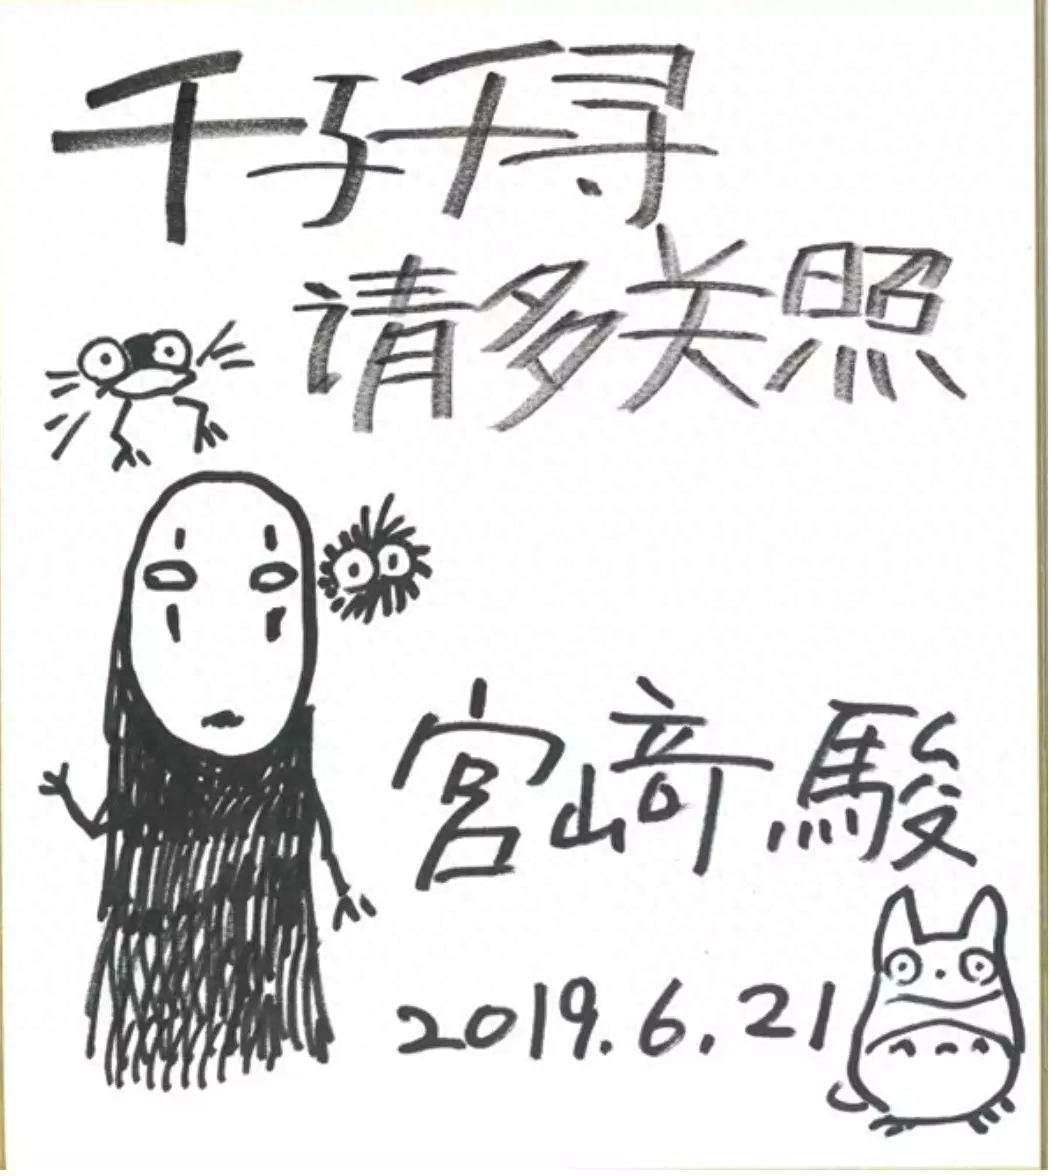 千与千寻
请多关照
宮﨑 駿
2019.6.21